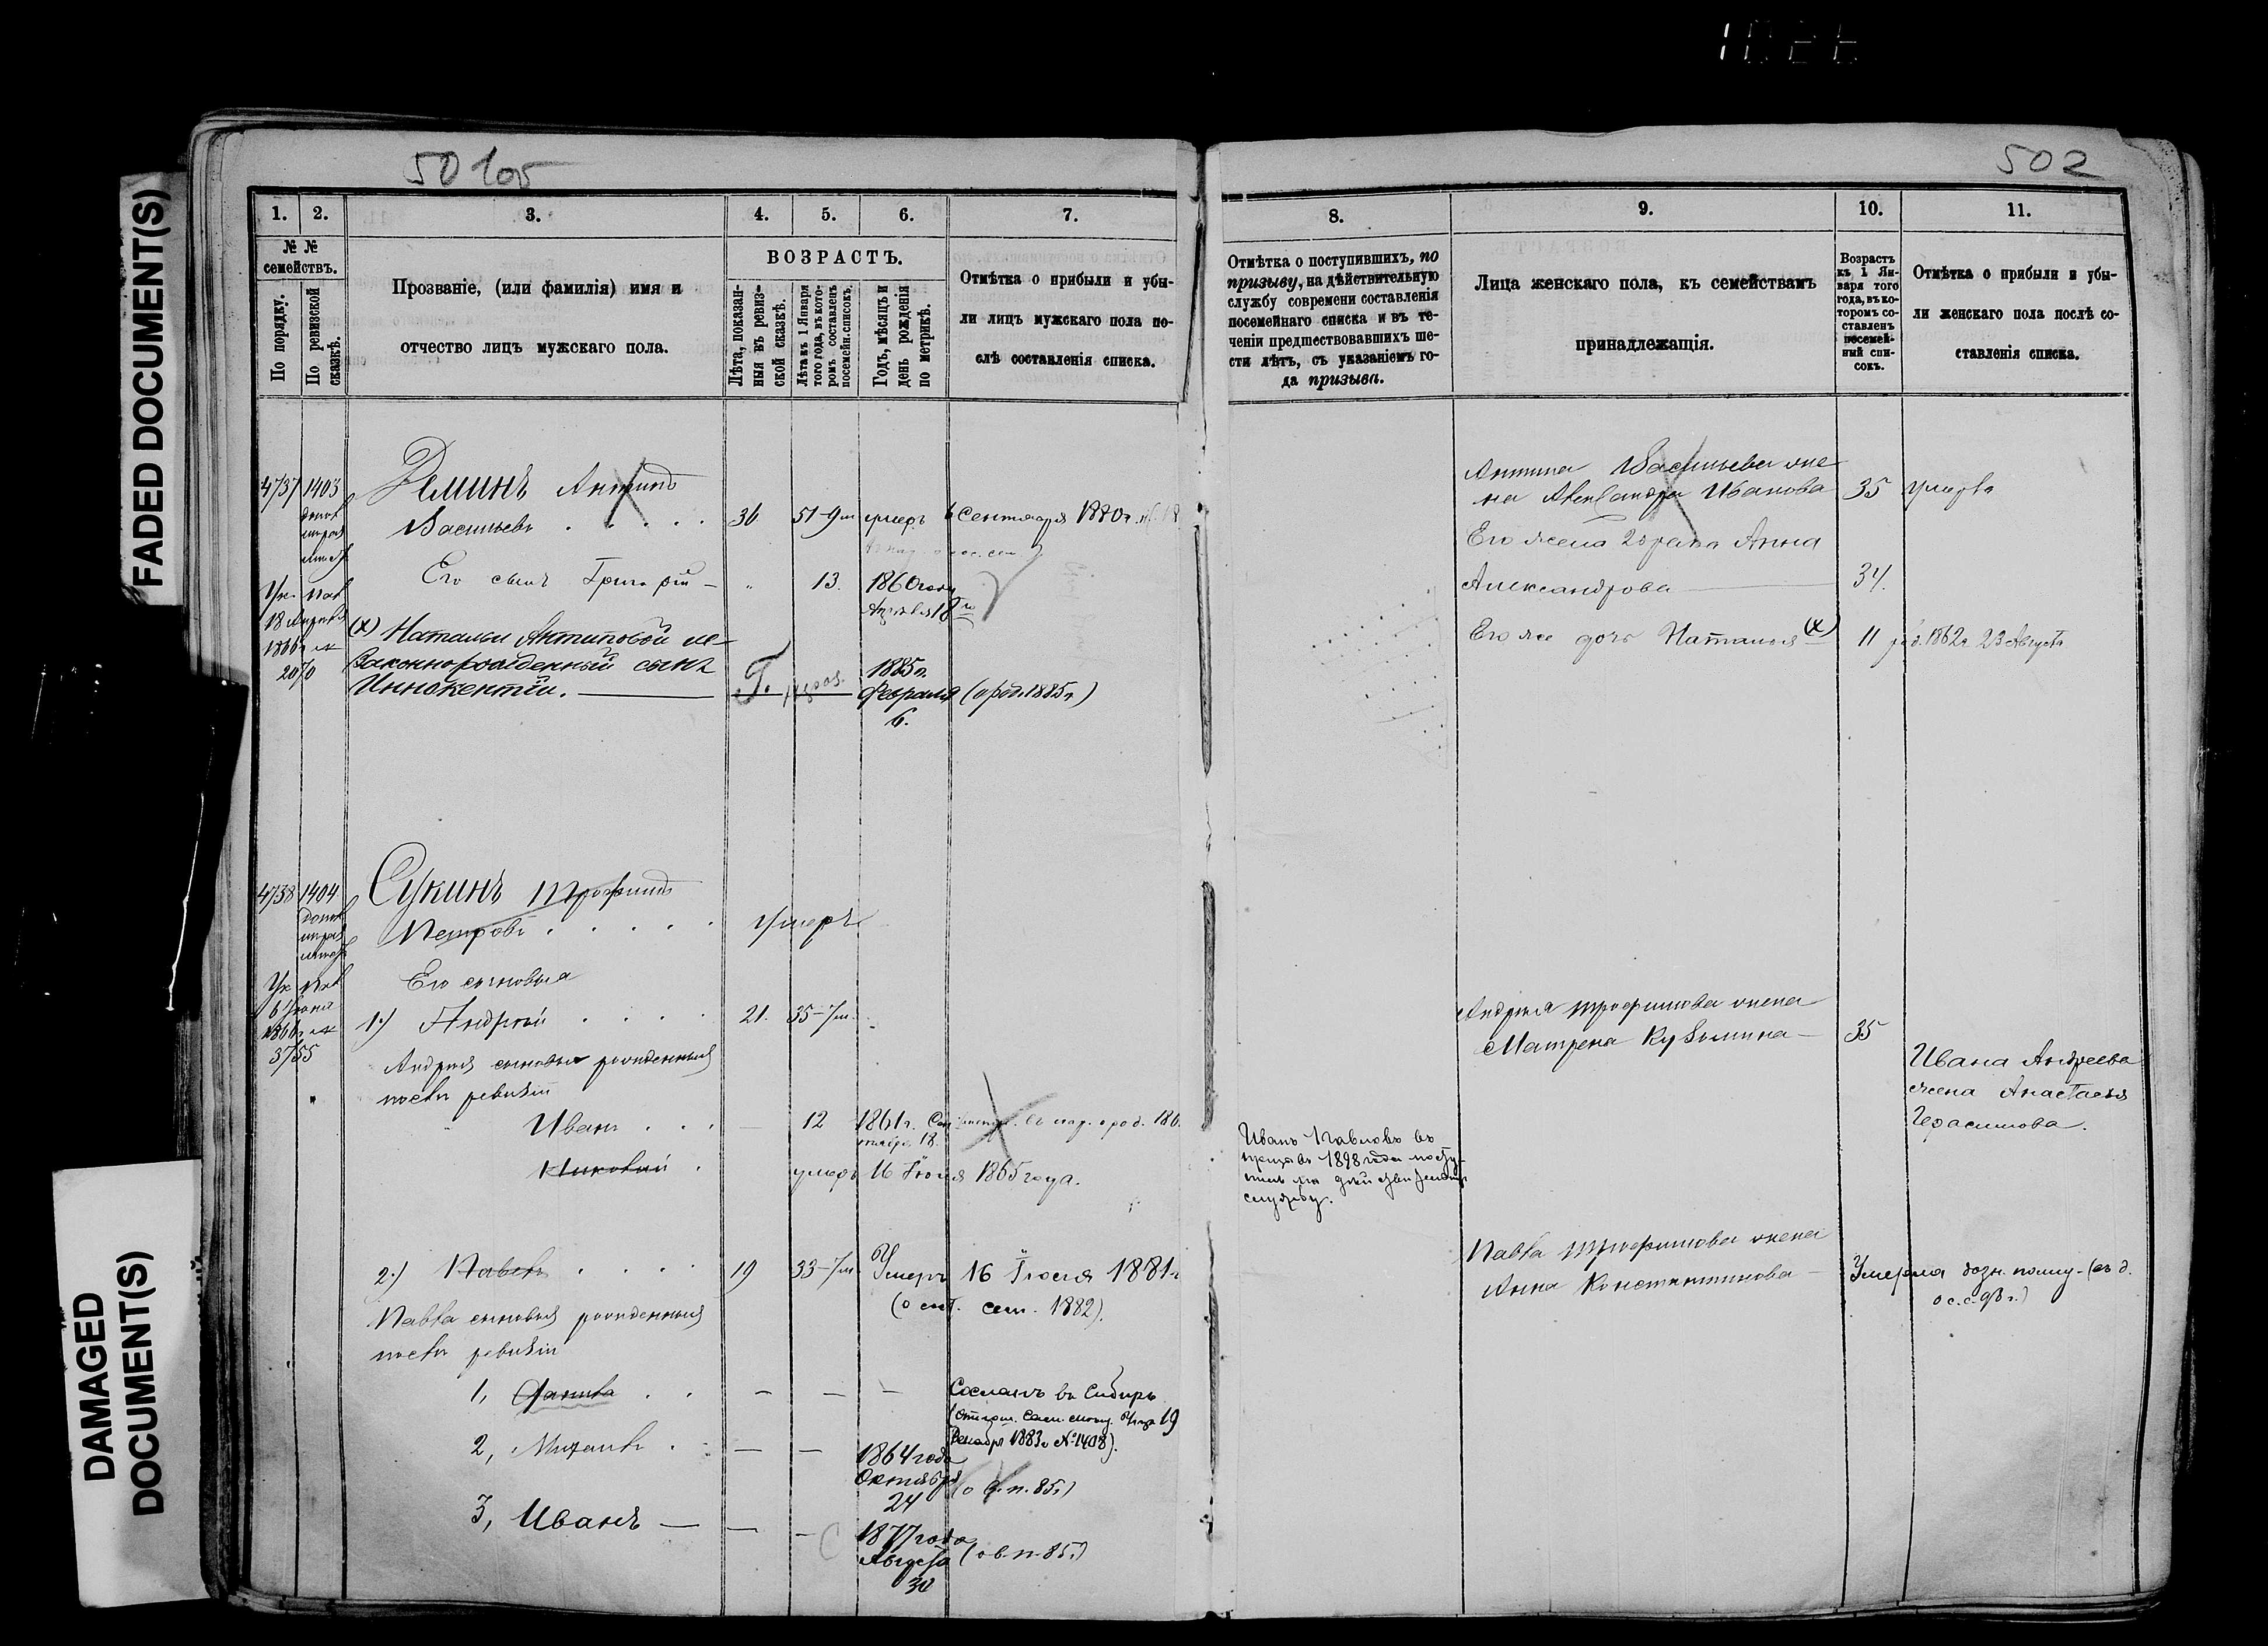 FADED DOCUMENT(S)
DAMAGED
DOCUMENT(S)
502
1.
2.
3.
4.
5.
6.
7.
№ №
семействъ.
По порядку.
По ревизской
сказкѣ.
Прозваніе, (или фамилія) имя и
отчество лицъ мужскаго пола.
ВОЗРАСТЪ.
Лѣта, показан-
ныя въ ревиз-
ской сказкѣ.
Лѣта къ 1 Января
того года, въ кото-
ромъ составленъ
посемейн. списокъ.
Годъ, мѣсяцъ и
день рожденія
по метрикѣ.
Отмѣтка о прибыли и убы-
ли лицъ мужскаго пола по-
слѣ составленія списка.
8.
9.
10.
11.
Отмѣтка о поступившихъ, по
призыву, на дѣйствительную
службу современи составленія
посемейнаго списка и въ те-
ченіи предшествовавшихъ ше-
сти лѣтъ, съ указаніемъ го-
да призыва.
Лица женскаго пола, къ семействамъ
принадлежащія.
Возрастъ
къ 1 Ян-
варя того
года, въ ко-
торомъ со-
ставленъ
посемей-
ный спи-
сокъ.
Отмѣтка о прибыли и убы-
ли женскаго пола послѣ со-
ставленія списка.
4737 1403
Деминъ Антипъ
Васильевъ 36 51 умеръ 6 Сентября 1880 г.
Его сынъ Григорій 13. 1860 года
Апрѣля 18
1866 г. №
2070
(х) Натальи Антиповой не-
законнорожденный сынъ
Иннокентій. 1885 г.
Февраля (о род. 1885 г.)
6.
Антипа Васильева жена
Александра Иванова 35 умерла
Его жена 2го брака Анна
Александрова 34.
Его же дочь Наталья (х) 11 род. 1862 г. 23 Августа
4738 1404
Сукинъ Трофимъ
Петровъ умеръ
Его сыновья
6 Іюня
1866 г. №
3755
1.) Андрей 21. 35
Андрея сыновья рожденныя
послѣ ревизіи
Иванъ 12 1861 г. Сен
тября 18.
Николай умеръ 16 Іюля 1865 года.
2.) Павелъ 19 33 Умеръ 16 Іюля 1881 г.
сем. 1882).
Павла сыновья рожденныя
послѣ ревизіи
1, Данила Сосланъ въ Сибирь
19
Декабря 1883 г. № 1408).
2, Михаилъ 1864 года
Октября
24
3, Иванъ 1877 года
Августа
30
Андрея Трофимова жена
Матрена Кузьмина 35
Ивана Андреева
жена Анастасья
Герасимова.
Иванъ Павловъ въ
1898 года посту-
службу.
Павла Трофимова жена
Анна Константинова Умерла